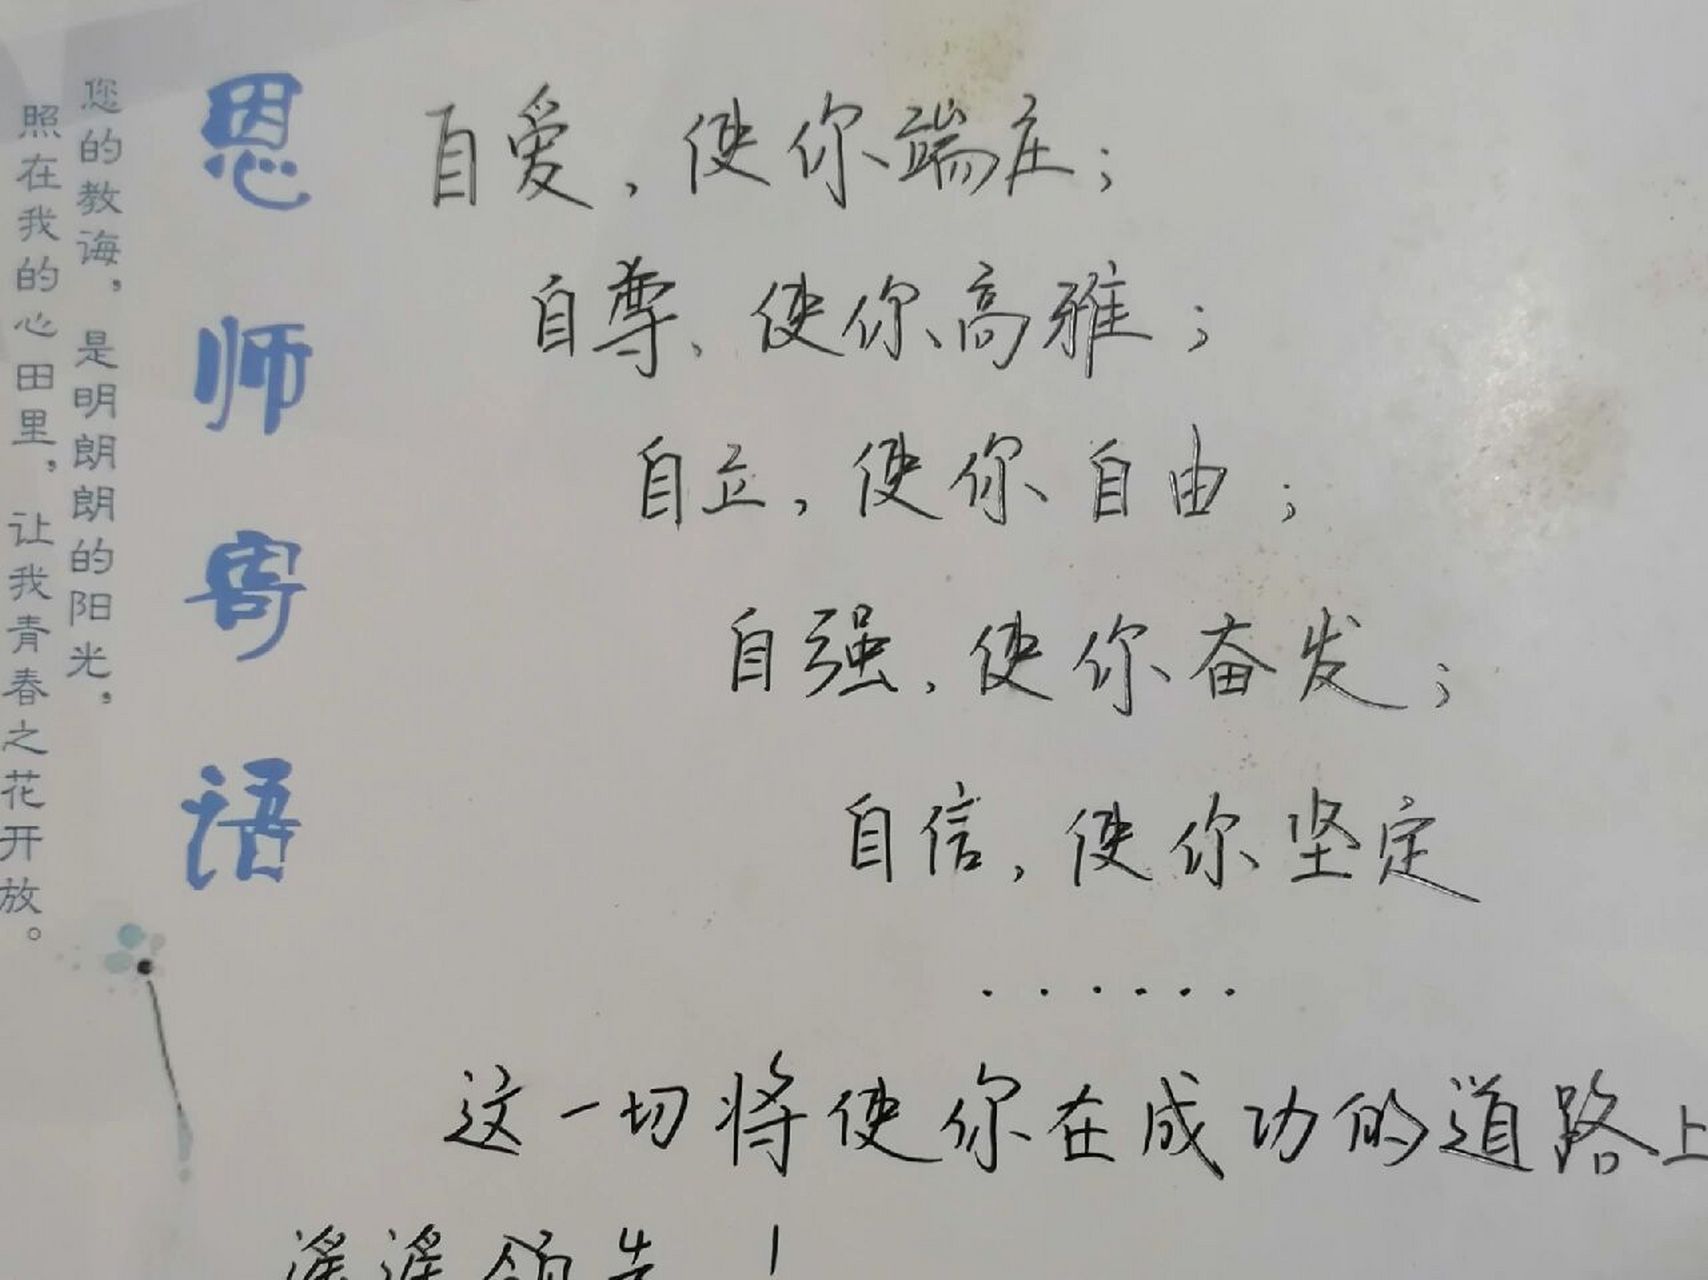 恩师寄语
您的教诲，是明朗朗的阳光，
照在我的心田里，让我青春之花开放。
自爱，使你端庄；
自尊、使你高雅；
自立，使你自由；
自强，使你奋发；
自信，使你坚定
······
这一切将使你在成功的道路上
遥遥领先！